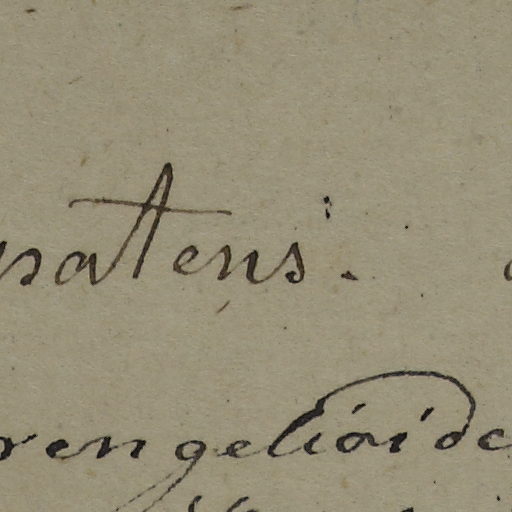 natens.
rengelioide